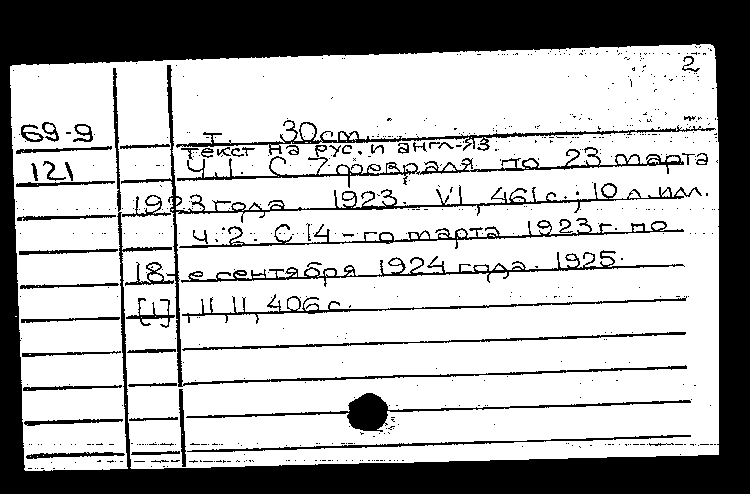 2
69-9 т. 30 см.
текст на рус. и англ-яз.
121 Ч.1. С 7 февраля по 23 марта
1923 года. 1923. VI, 461 с.; 10 л. илл.
ч. 2. С 14-го марта 1923 г. по
18-е сентября 1924 года. 1925.
[1], II, II, 406 с.